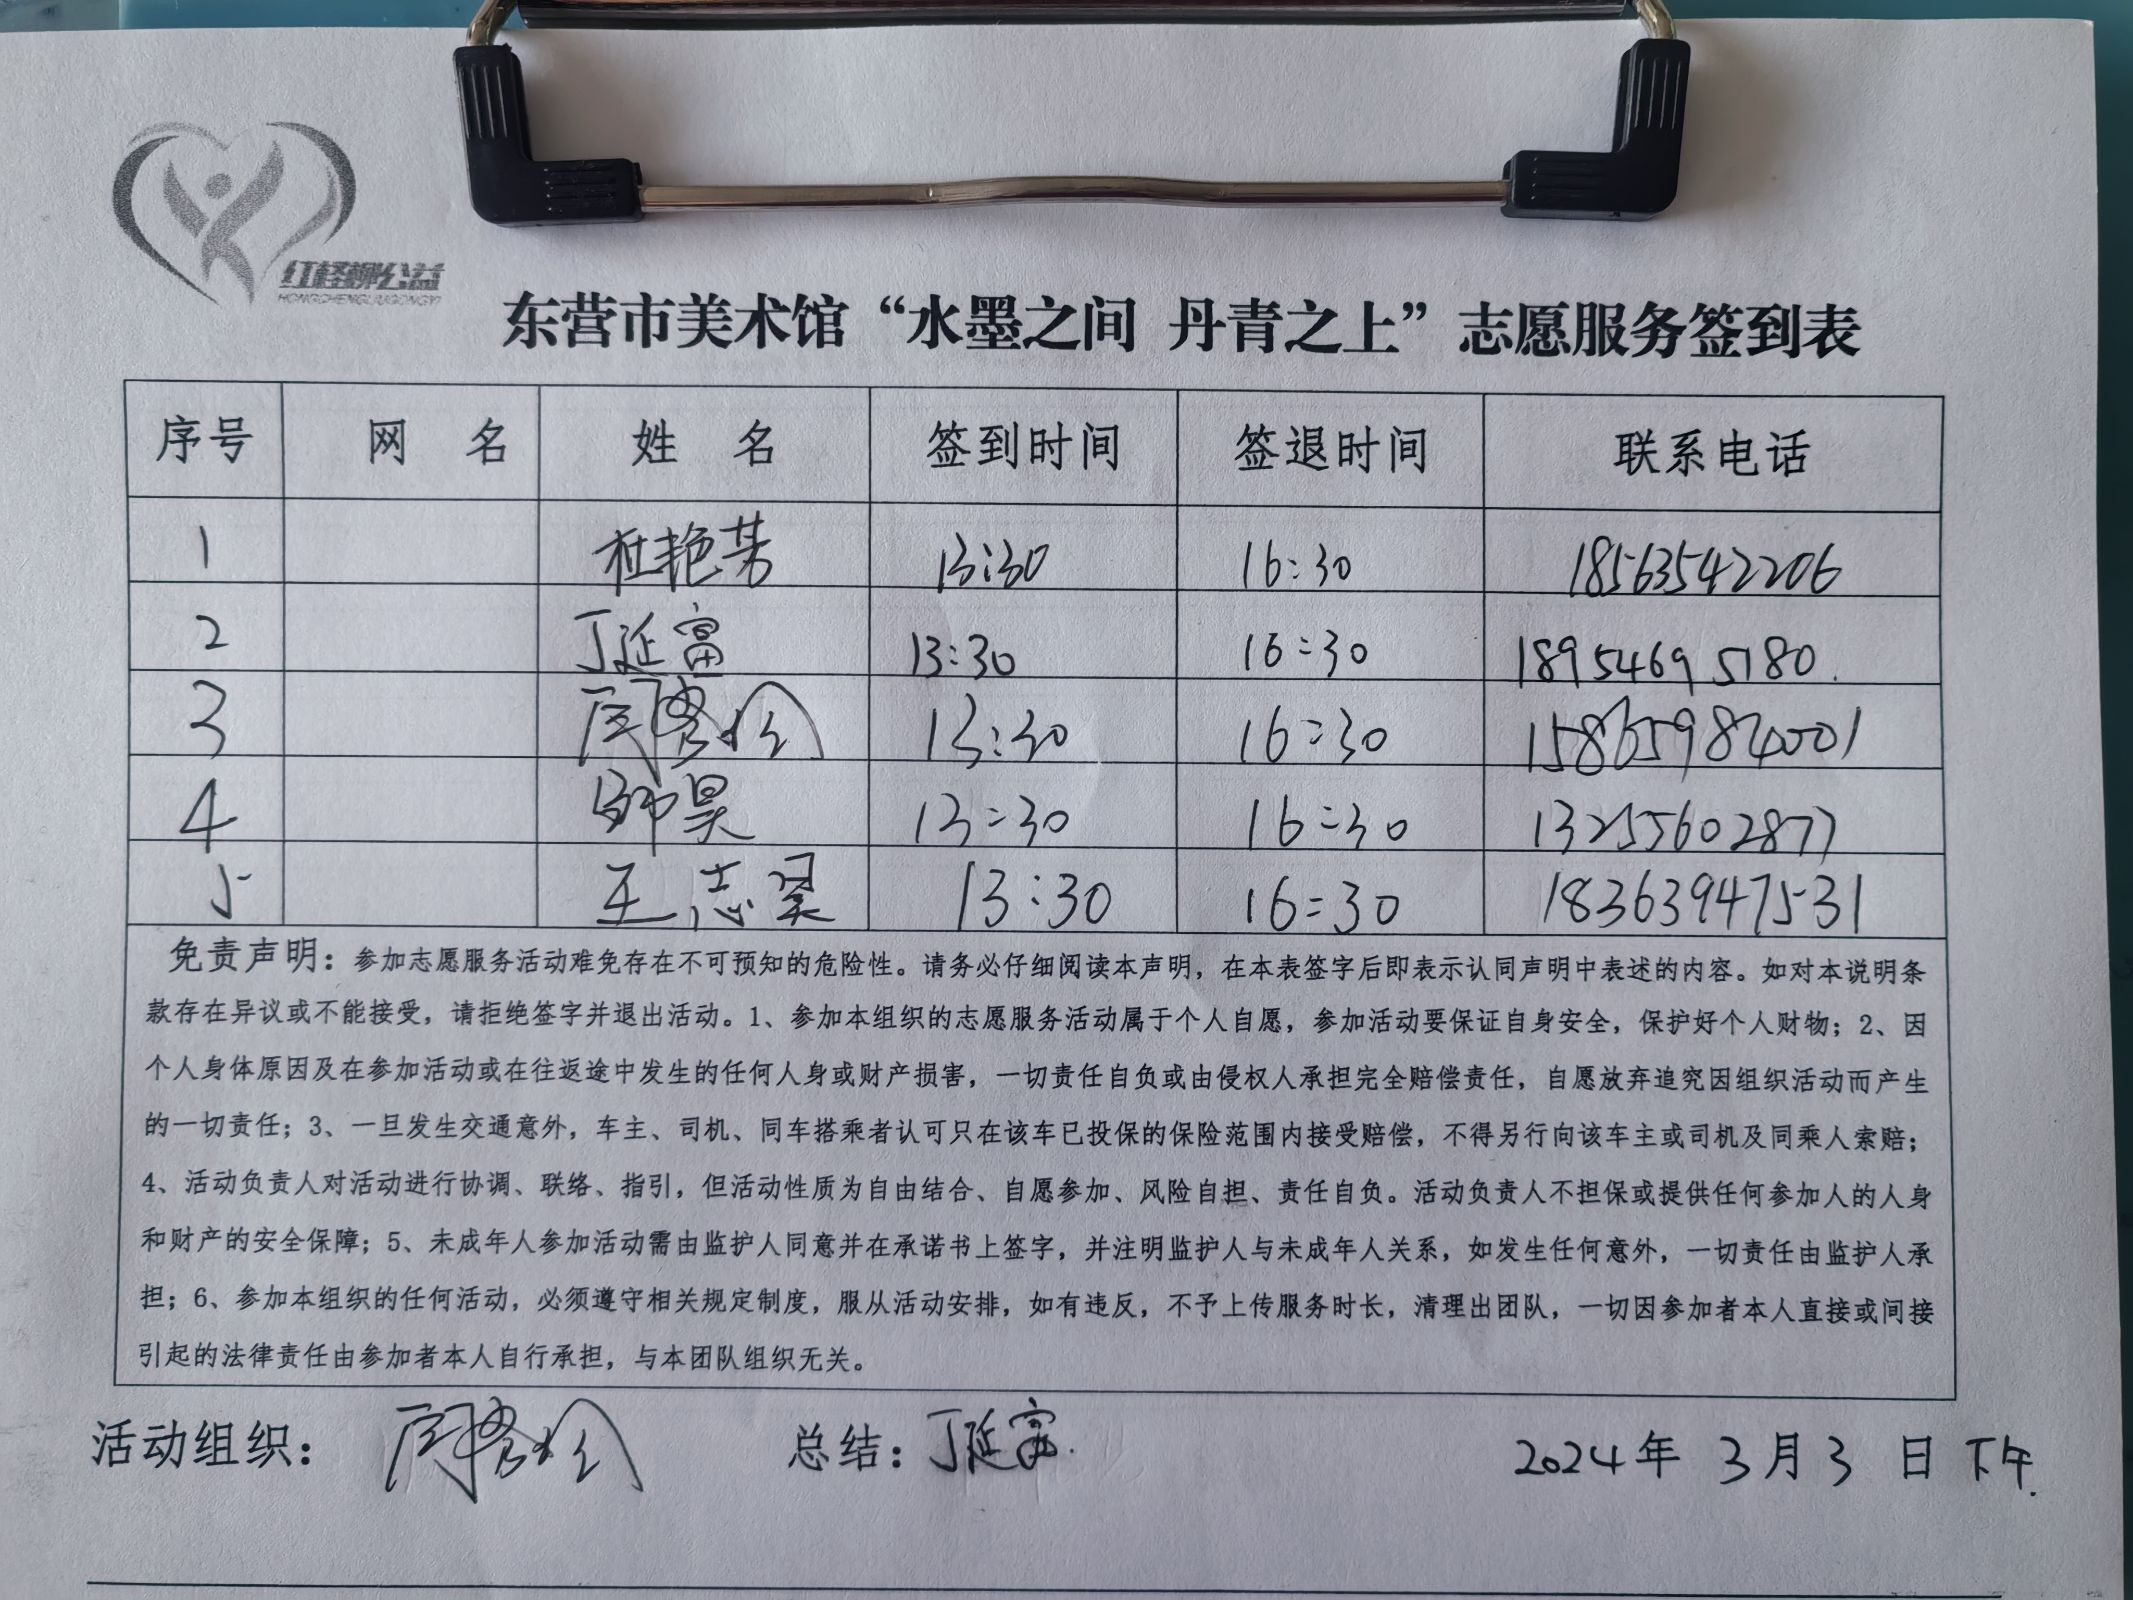 红柽柳公益
HONGCHENGLIUGONGYI
东营市美术馆“水墨之间 丹青之上”志愿服务签到表
序号 网 名 姓 名 签到时间 签退时间 联系电话
1 杜艳芳 13:30 16:30 18563542206
2 丁延富 13:30 16:30 18954695180
3 13:30 16:30
4 昊 13:30 16:30 13255602877
5 王志昊 13:30 16:30 18363947531
免责声明：参加志愿服务活动难免存在不可预知的危险性。请务必仔细阅读本声明，在本表签字后即表示认同声明中表述的内容。如对本说明条
款存在异议或不能接受，请拒绝签字并退出活动。1、参加本组织的志愿服务活动属于个人自愿，参加活动要保证自身安全，保护好个人财物；2、因
个人身体原因及在参加活动或在往返途中发生的任何人身或财产损害，一切责任自负或由侵权人承担完全赔偿责任，自愿放弃追究因组织活动而产生
的一切责任；3、一旦发生交通意外，车主、司机、同车搭乘者认可只在该车已投保的保险范围内接受赔偿，不得另行向该车主或司机及同乘人索赔；
4、活动负责人对活动进行协调、联络、指引，但活动性质为自由结合、自愿参加、风险自担、责任自负。活动负责人不担保或提供任何参加人的人身
和财产的安全保障；5、未成年人参加活动需由监护人同意并在承诺书上签字，并注明监护人与未成年人关系，如发生任何意外，一切责任由监护人承
担；6、参加本组织的任何活动，必须遵守相关规定制度，服从活动安排，如有违反，不予上传服务时长，清理出团队，一切因参加者本人直接或间接
引起的法律责任由参加者本人自行承担，与本团队组织无关。
活动组织： 总结：丁延富 2024年 3月3 日 下午.